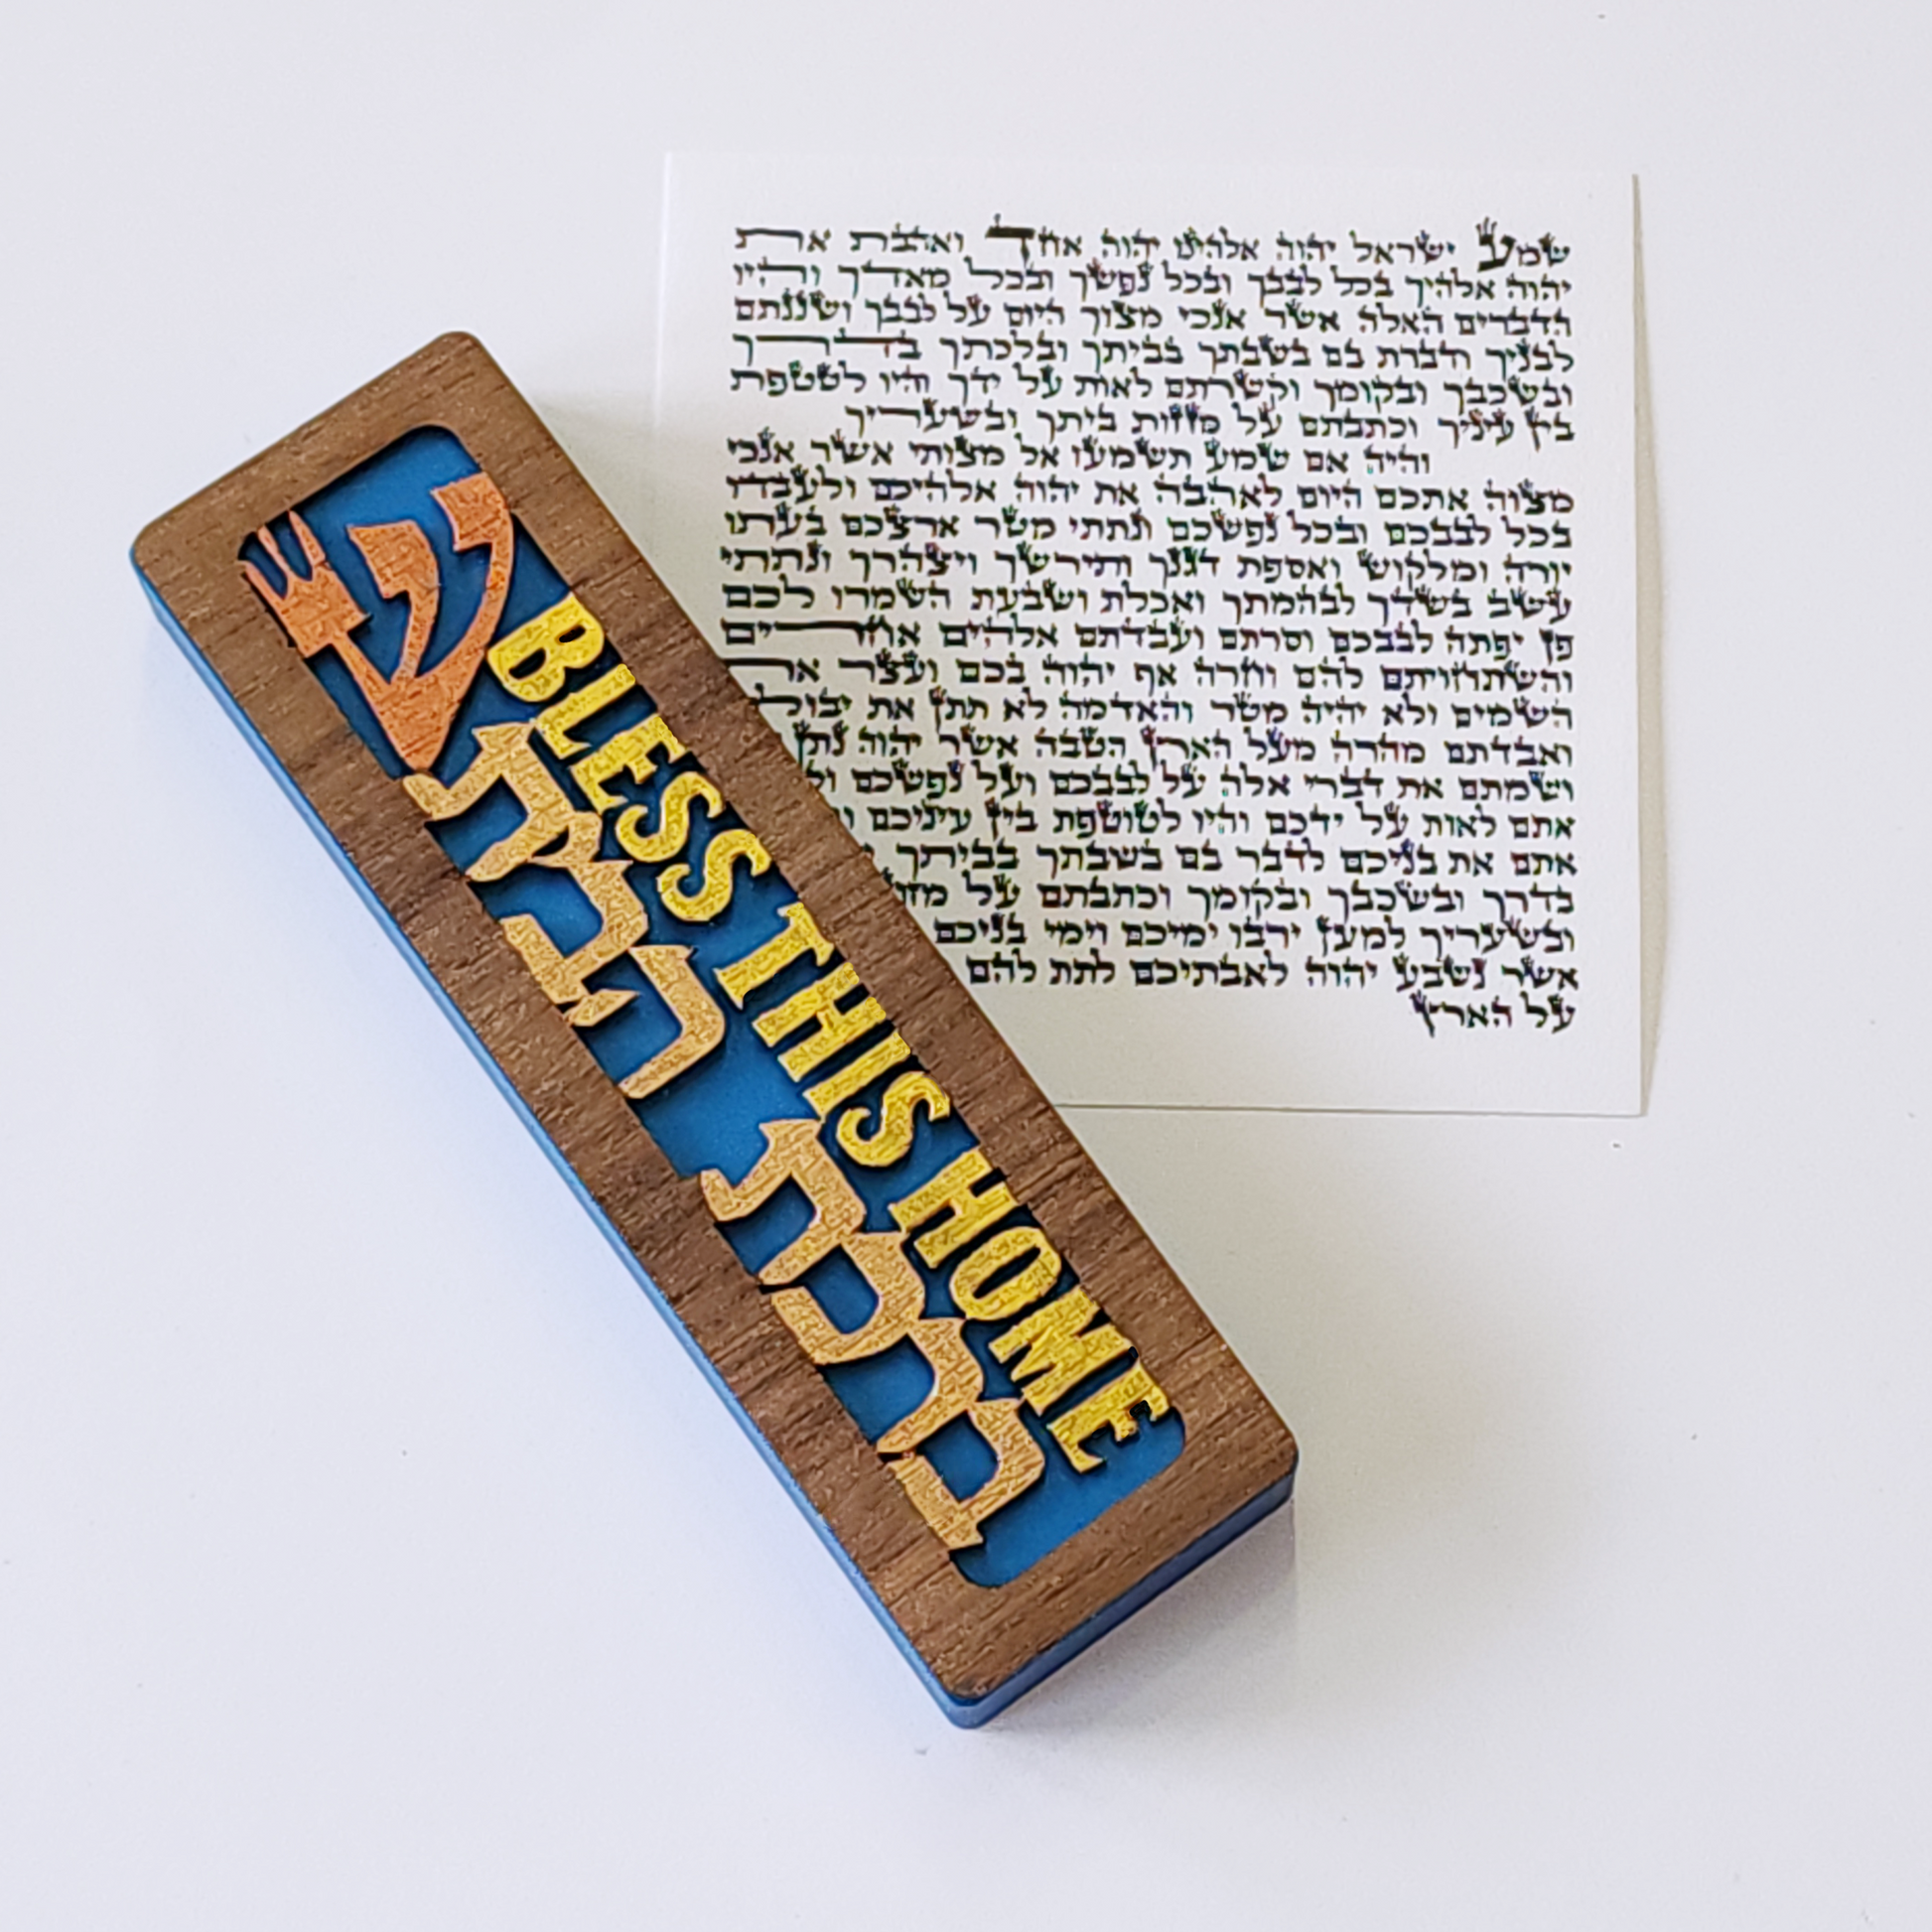 ש
BLESS THIS HOME
ברכת הבית
שמע ישראל יהוה אלהינו יהוה אחד ואהבת את
יהוה אלהיך בכל לבבך ובכל נפשך ובכל מאדך והיו
הדברים האלה אשר אנכי מצוך היום על לבבך ושננתם
לבניך ודברת בם בשבתך בביתך ובלכתך בדרך
ובשכבך ובקומך וקשרתם לאות על ידך והיו לטטפת
בין עיניך וכתבתם על מזזות ביתך ובשעריך
והיה אם שמע תשמעו אל מצותי אשר אנכי
מצוה אתכם היום לאהבה את יהוה אלהיכם ולעבדו
בכל לבבכם ובכל נפשכם ונתתי מטר ארצכם בעתו
יורה ומלקוש ואספת דגנך ותירשך ויצהרך ונתתי
עשב בשדך לבהמתך ואכלת ושבעת השמרו לכם
פן יפתה לבבכם וסרתם ועבדתם אלהים אחרים
והשתחויתם להם וחרה אף יהוה בכם ועצר
השמים ולא יהיה מטר והאדמה לא תתן את
ואבדתם מהרה מעל הארץ הטבה אשר יהוה נתן
ושמתם את דברי אלה על לבבכם ועל נפשכם
אתם לאות על ידכם והיו לטוטפת בין עיניכם
אתם את בניכם לדבר בם בשבתך בביתך
בדרך ובשכבך ובקומך וכתבתם על
ובשעריך למען ירבו ימיכם וימי בניכם
אשר נשבע יהוה לאבתיכם לתת להם
על הארץ